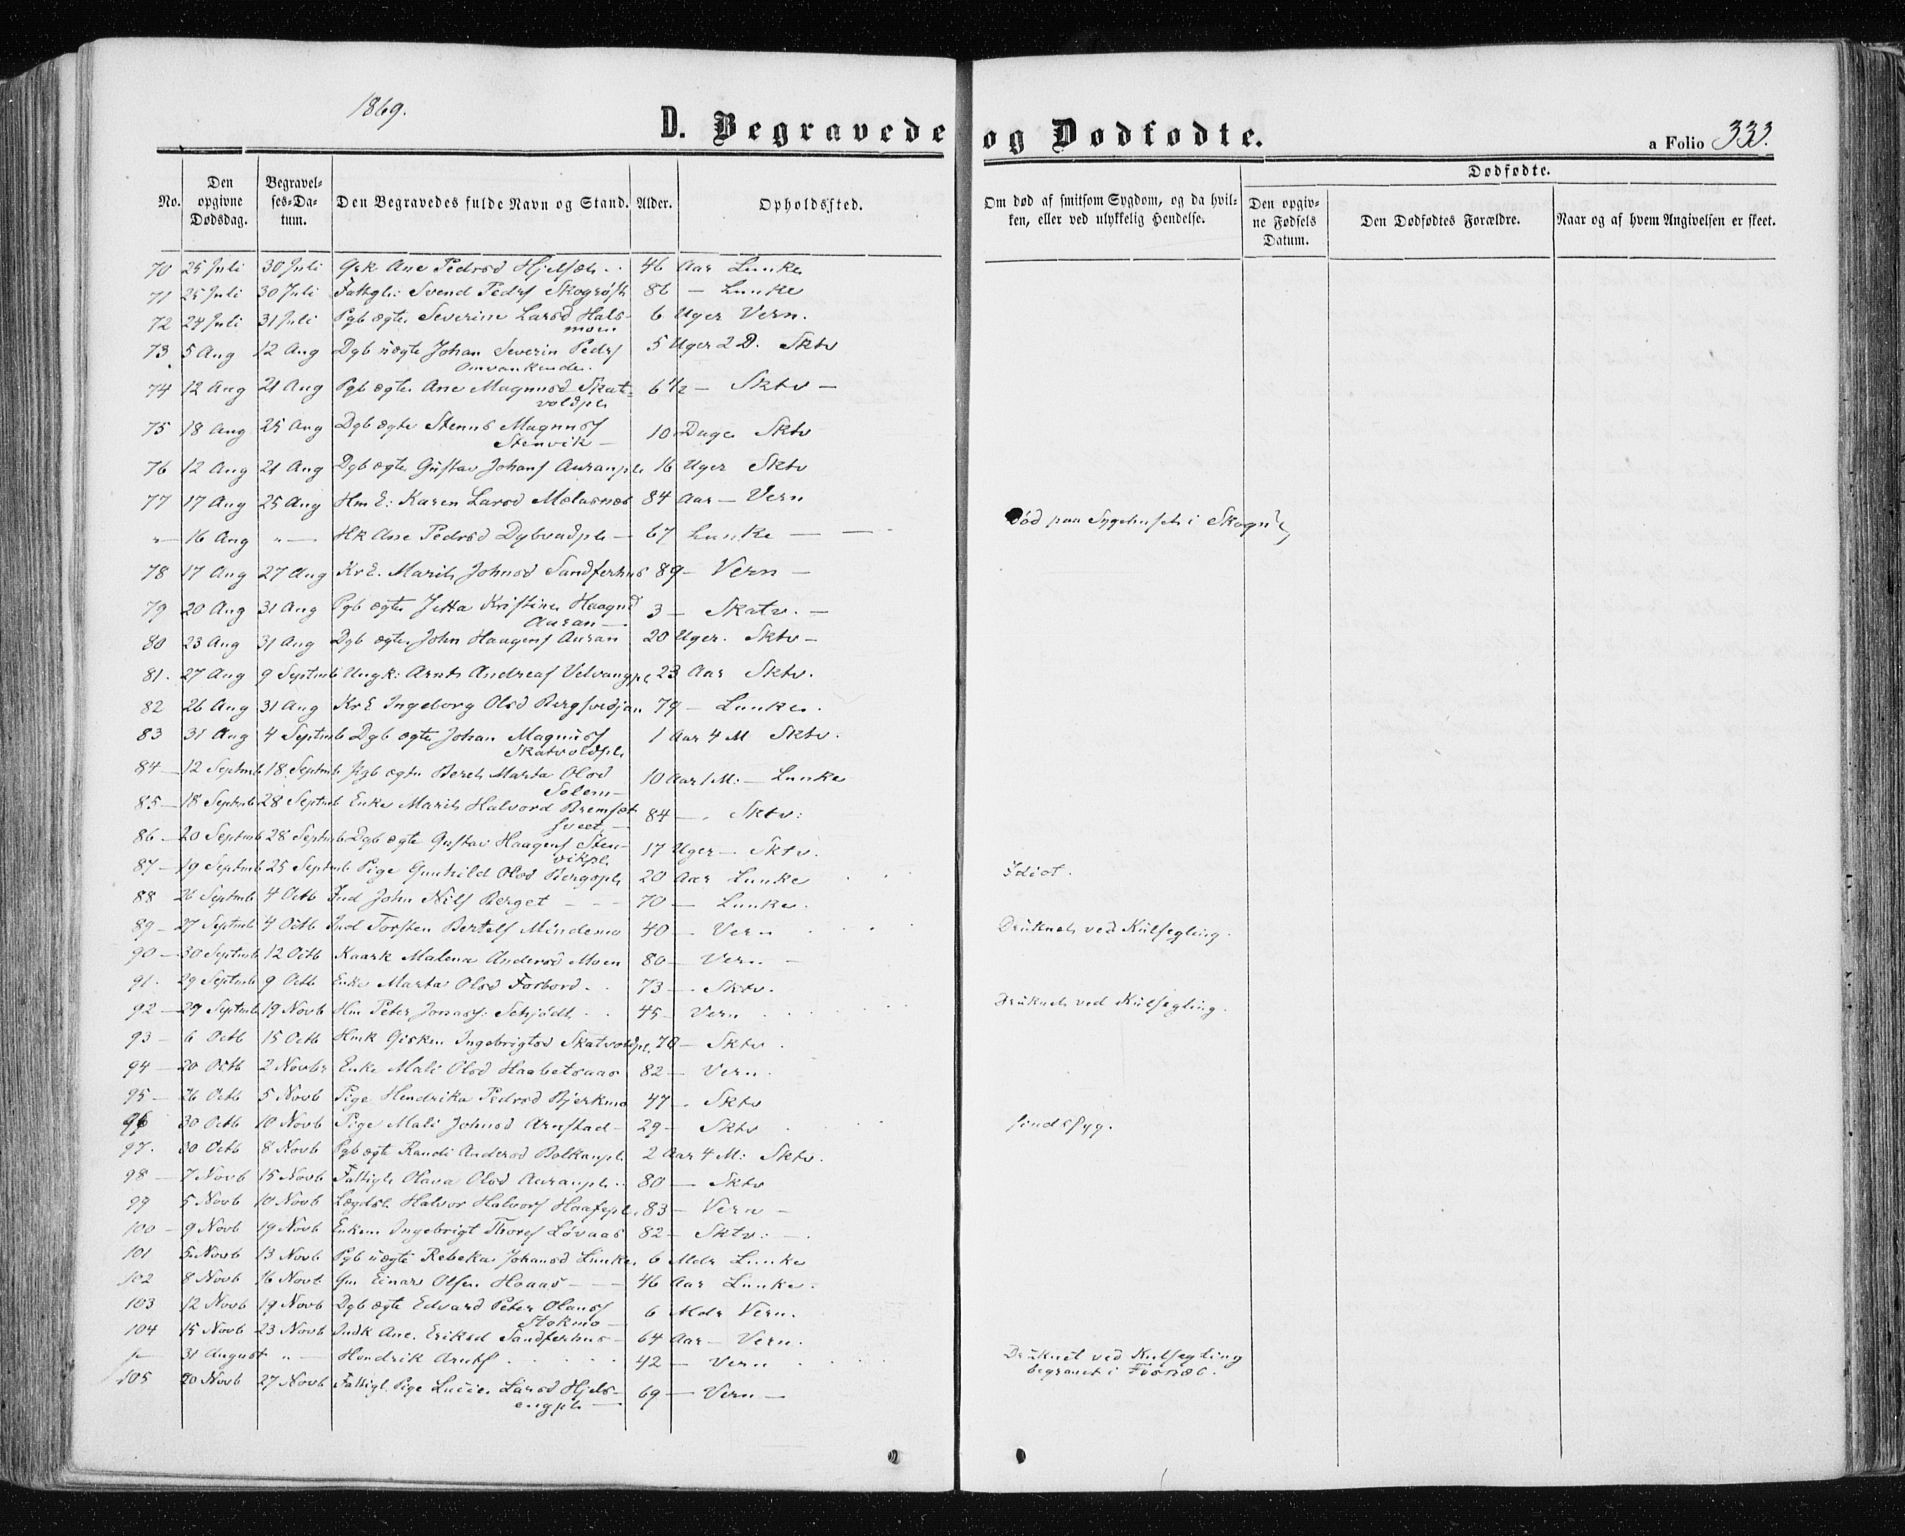 1869.
D. Begravede og Dødfødte.
a Folio 333.
No.
Den opgivne Dødsdag.
Begravelses-Datum.
Den Begravedes fulde Navn og Stand.
Alder.
Opholdssted.
Om død af smitsom Sygdom, og da hvilken, eller ved ulykkelig Hendelse.
Dødfødte.
Den opgivne Fødsels Datum.
Den Dødfødtes Forældre.
Naar og af hvem Angivelsen er skeet.
70 25 Juli 30 Juli Grk Ane Pedrsd 46 Aar Lunke
71 25 Juli 30 Juli Svend Pedrs 86 — Lunke
72 24 Juli 31 Juli Pgb ægte Severine Larsd Hals-
moen 6 Uger Vern.
73 5 Aug 12 Aug Dgb uægte Johan Severin Pedrs
Omvankende. 5 Uger 2 D. Sktv
74 12 Aug 21 Aug Pgb ægte Ane Magnusd Skat-
voldpl 6 1/2 — Sktv —
75 18 Aug 25 Aug Dgb ægte Magnus
Stenvik — 10 Dage Sktv
76 12 Aug 21 Aug Dgb ægte Gustav Johans Auranpl 16 Uger Sktv
77 17 Aug 25 Aug Hm E: Karen Larsd 84 Aar — Vern
"— 16 Aug "— Hk Ane Pedrsd Dybvadpl — 67 Lunke — — Død paa Sygehuset i Skogn
78 17 Aug 27 Aug Kr E. Marit Johnsd Sandferhus 89 — Vern —
79 20 Aug 31 Aug Pgb ægte Kristine Haagnd
Auran — 3 — Skatv. —
80 23 Aug 31 Aug Dgb ægte John Haagens Auran 20 Uger. Sktv —
81. 27 Aug 9 Septmb Ungk: Arnt Andreas Velvangpl 23 Aar Sktv.
82 26 Aug 31 Aug Kr E Ingeborg Olsd 79 — Lunke.
83 31 Aug 4 Septmb Dgb ægte Johan Magnus
Skatvoldpl. 1 Aar 4 M Sktv.
84 — 12 Septmb 18 Septmb Pgb ægte Beret Marta Olsd
Solem — 10 Aar 1 M: — Lunke
85 — 18 Septmb 28 Septmb Enke Marit Halvord
84 — . Sktv:
86 — 20 Septmb 28 Septmb Dgb ægte Gustav Haagens Sten-
vikpl. 17 Uger — Sktv.
87 — 19 Septmb 25 Septmb Pige Gunhild Olsd 20 Aar Lunke Idiot.
88 26 Septmb 4 Octb Ind John Nils Berget — 70 — Lunke.
89 — 27 Septmb 4 Octb Ind Torsten Bertels Mindemo 40 — Vern Druknet ved Kulsegling.
90 — 30 Septmb 12 Octb Kaark Malena Andersd Moen 80 — Vern —
91. 29 Septmb 9 Octb Enke Marta Olsd Forbord. 73 — Sktv.
92 — 29 Septmb 19 Novb Hm Peter Jonas: Schjødt 45 — Vern Druknet ved Kulsegling.
93 — 6 Octb 15 Octb Hmk Gisken Ingebrigtsd Skatvoldpl. 70 — Sktv
94 — 20 Octb 2 Novbr Enke Mali Olsd Haabetsaas 82 — Vern.
95 — 26 Octb 5 Novb Pige Hendrika Pedrsd Bjerkmo 47 — Sktv
96 30 Octb 10 Novb Pige Mali Johnsd Arnstad — 29 — Sktv Sindssyg.
97. 30 Octb 8 Novb Pgb ægte Randi Andersd Bolkanpl. 2 Aar 4 M: Sktv.
98 — 7 Novb 15 Novb Fattigl Olava Olsd Auranpl. 80 — Sktv
99 5 Novb 10 Novb Lægdsl. Halvor Halvors 83 — Vern —
100 — 9 Novb 19 Novb Enkem Ingebrigt Thores Løvaas 82 — Sktv: —
101 5 Novb 13 Novb Pgb uægte Rebeka Johansd Lunke 6 Mdr Lunke
102 8 Novb 16 Novb Gm Einar Olsen Hoaas — 46 Aar Lunke.
103 12 Novb 19 Novb Dgb ægte Edvard Peter Olaus
Stokmo — 6 Mdr Vern.
104 15 Novb 23 Novb Indk Ane. Eriksd Sandferhus — 64 Aar — Vern.
31 August "— Hendrik Arnts 42 — Vern Druknet ved Kulsegling
begravet i
105 20 Novb 27 Novb Fattigl. Pige Lucie Larsd Hjels-
engpl — 69 — Vern —